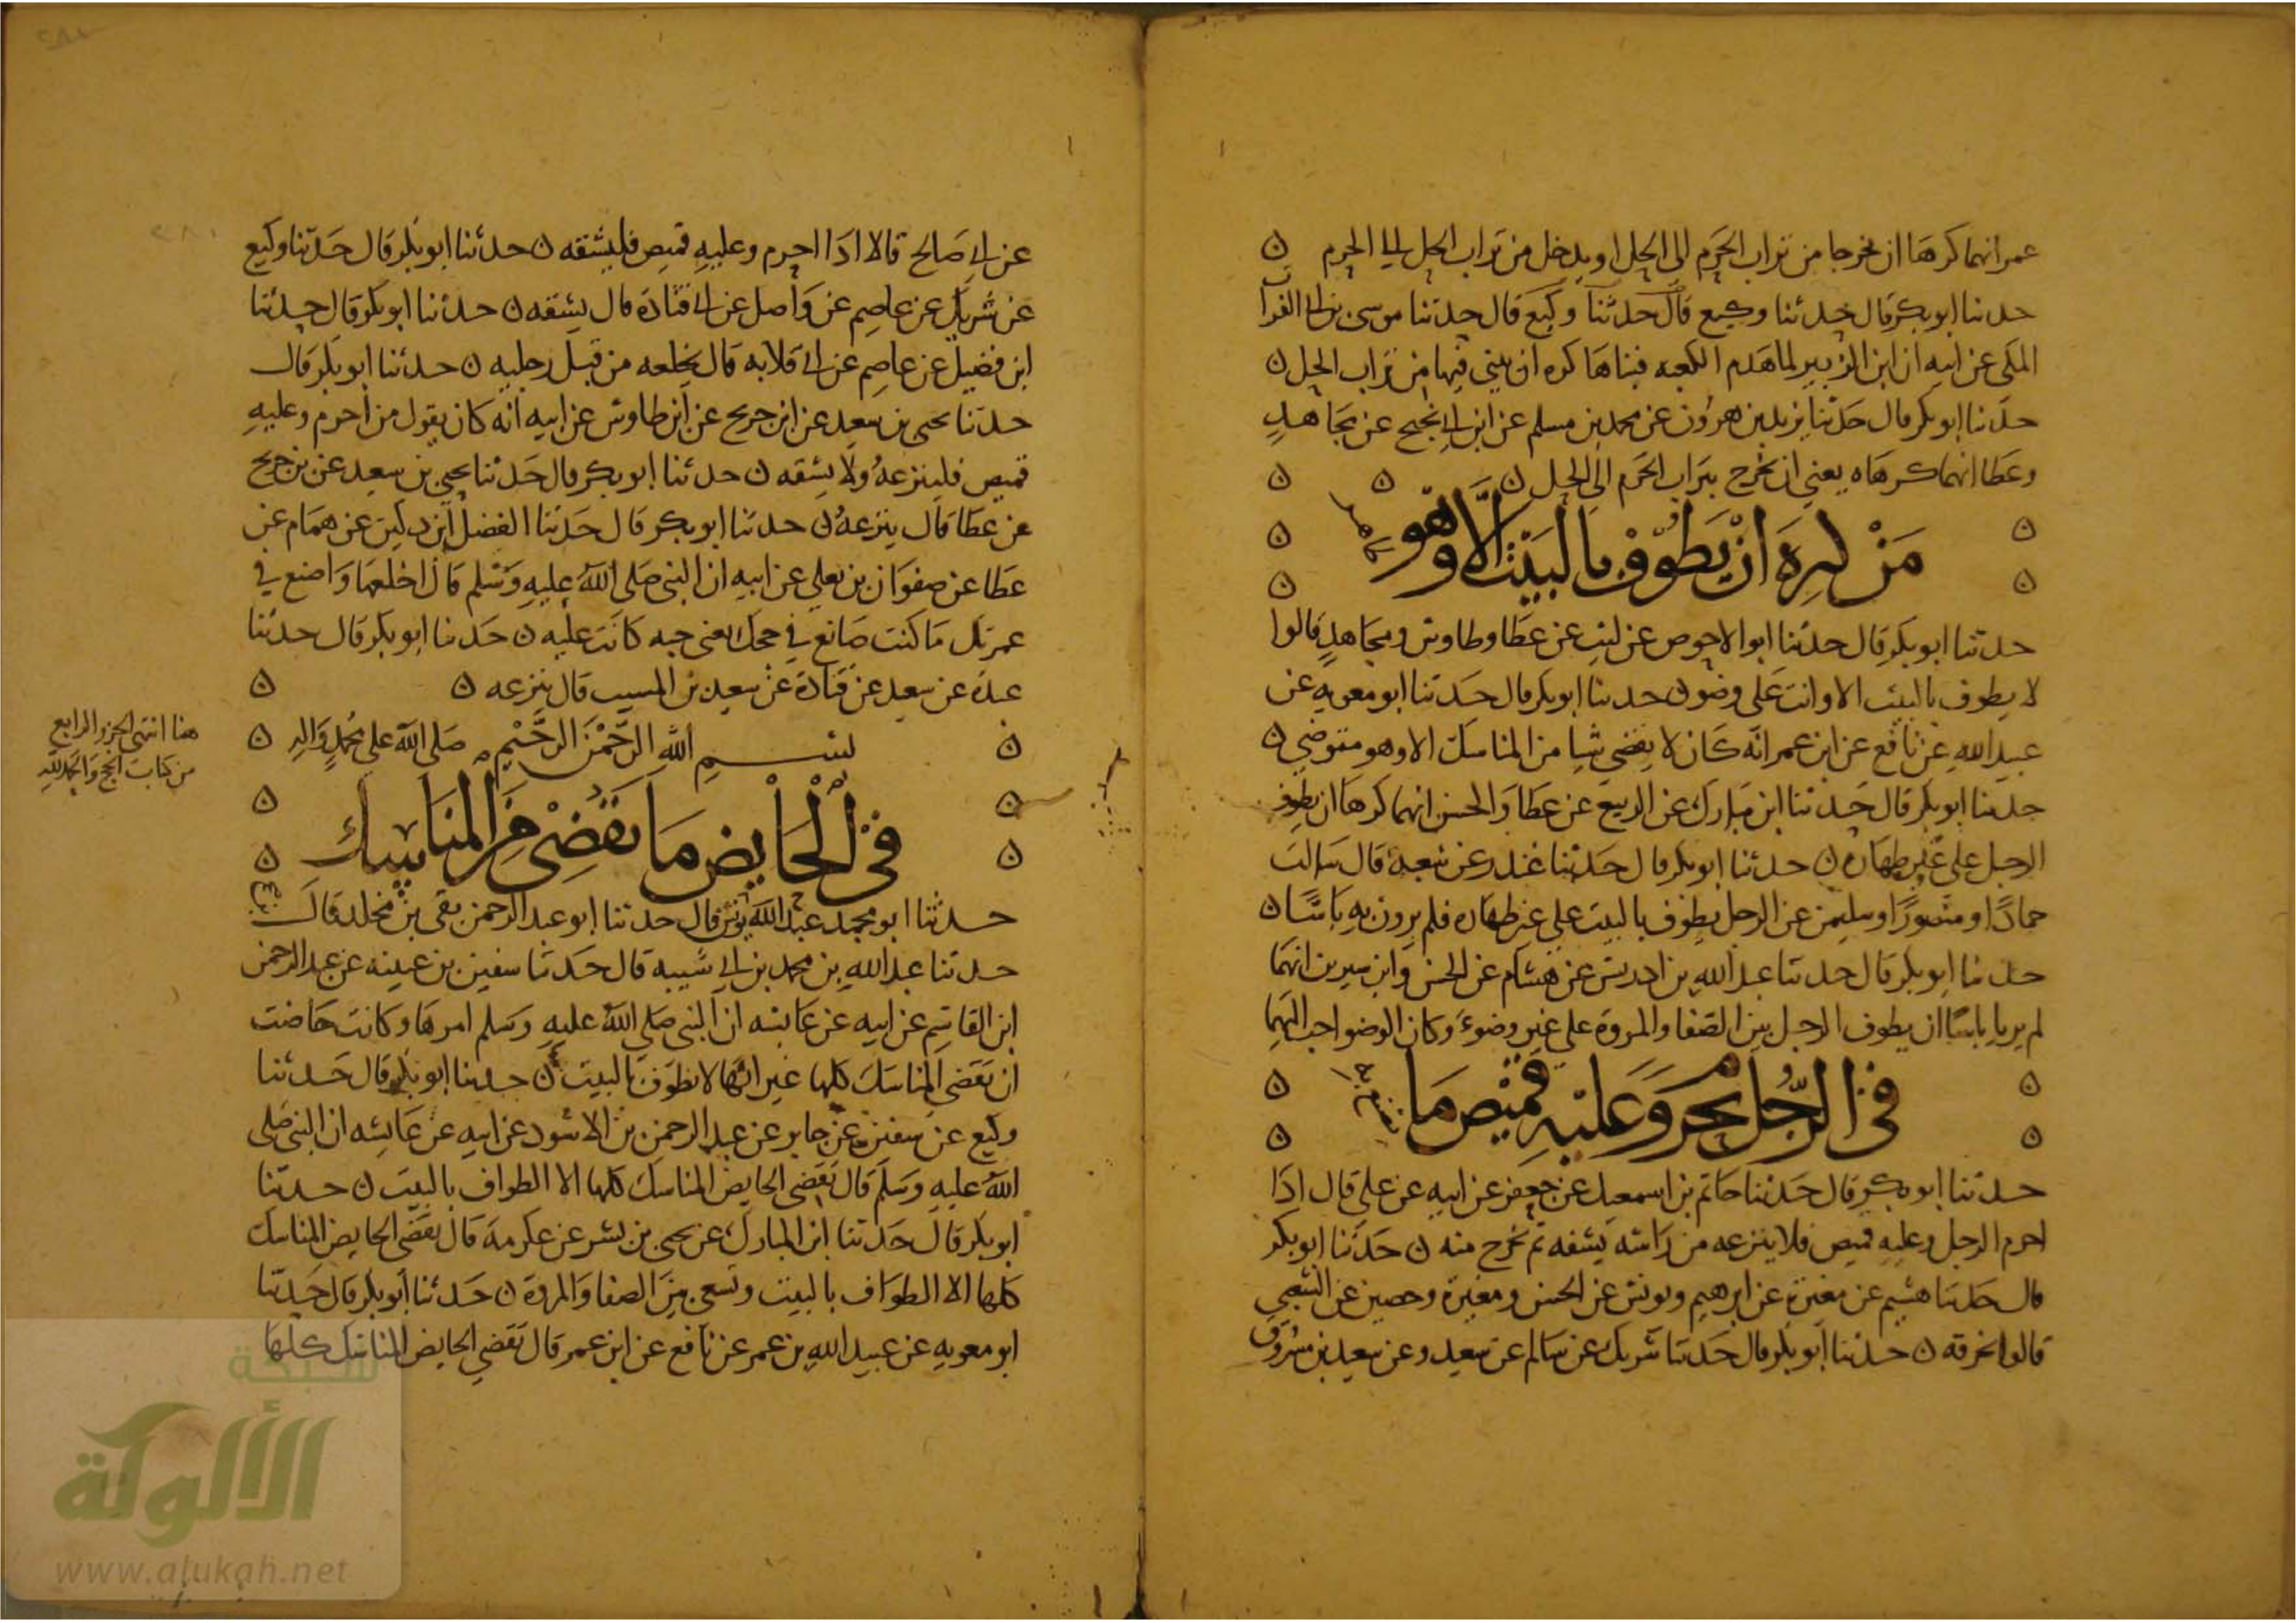 عمر انهما كرها ان يخرجا من تراب الحرم الى الحل او يدخل من تراب الحل الى الحرم ن
حدثنا ابو بكر قال حدثنا وكيع قال حدثنا وكيع قال حدثنا موسى بن ابي الفرات
المكي عن ابيه ان ابن الزبير لما هدم الكعبه فبناها كره ان يبني فيها من تراب الحل ن
حدثنا ابو بكر قال حدثنا يزيد بن هرون عن محمد بن مسلم عن ابن ابي نجيح عن مجاهد
وعطا انهما كرهاه يعني ان يخرج بتراب الحرم الى الحل ن ن ن
مَنْ كرِهَ اَنْ يَطوف بِالبَيْت اِلَّا وهُو
طاهر
حدثنا ابو بكر قال حدثنا ابو الاحوص عن ليث عن عطا وطاوس ومجاهد قالوا
لا يطوف بالبيت الا وانت على وضو ن حدثنا ابو بكر قال حدثنا ابو معويه عن
عبيد الله عن نافع عن ابن عمر انه كان لا يقضي شيا من المناسك الا وهو متوضي ن
حدثنا ابو بكر قال حدثنا ابن مبارك عن الربيع عن عطا والحسن انهما كرها ان يطوف
الرجل على غير طهاره ن حدثنا ابو بكر قال حدثنا غندر عن شعبه قال سالت
حمادًا ومنصورًا وسليمن عن الرجل يطوف بالبيت على غير طهاره فلم يرون به باسًا ن
حدثنا ابو بكر قال حدثنا عبد الله بن ادريس عن هشام عن الحسن وابن سيرين انهما
لم يريا باسًا ان يطوف الرجل بين الصفا والمروة على غير وضوء وكان الوضو احب اليهما
في الرَّجُل يُحرم وَعَلَيْهِ قَميْص مَا
يصنع
حدثنا ابو بكر قال حدثنا حاتم بن اسمعيل عن جعفر عن ابيه عن علي قال اذا
احرم الرجل وعليه قميص فلا ينزعه من راسه يشقه ثم يخرج منه ن حدثنا ابو بكر
قال حدثنا هشيم عن مغيرة عن ابرهيم ويونس عن الحسن ومغيرة وحصين عن الشعبي
قالوا يخرقه ن حدثنا ابو بكر قال حدثنا شريك عن سالم عن سعيد وعن سعيد بن مسروق
عن ابي صالح قالا اذا احرم وعليه قميص فليشقه ن حدثنا ابو بكر قال حدثنا وكيع
عن شريك عن عاصم عن واصل عن ابي قتادة قال يشقه ن حدثنا ابو بكر قال حدثنا
ابن فضيل عن عاصم عن ابي قلابه قال يخلعه من قبل رجليه ن حدثنا ابو بكر قال
حدثنا يحيى بن سعيد عن ابن جريج عن ابن طاوس عن ابيه انه كان يقول من احرم وعليه
قميص فلينزعه ولا يشقه ن حدثنا ابو بكر قال حدثنا يحيى بن سعيد عن بن جريج
عن عطا قال ينزعه ن حدثنا ابو بكر قال حدثنا الفضل ابن دكين عن همام عن
عطا عن صفوان بن يعلي عن ابيه ان النبي صلى الله عليه وسلم قال اخلعها واصنع في
عمرتك ما كنت صانع في حجك يعنى جبه كانت عليه ن حدثنا ابو بكر قال حدثنا
عبدة عن سعيد عن قتادة عن سعيد بن المسيب قال ينزعه ن ن
بسم الله الرَّحْمٰن الرَّحْيْم صلى الله على محمد واله ن
هنا انتهى الجزو الرابع
من كتاب الحج والحمد لله
فيْ الْحَايِض مَا تَقْضِيْ مِنَ المنَاسِك
حدثنا ابو محمد عبد الله يونس قال حدثنا ابو عبد الرحمن بقي بن مخلد قال
حدثنا عبد الله بن محمد بن ابي شيبه قال حدثنا سفين بن عيينه عن عبد الرحمن
ابن القاسم عن ابيه عن عايشه ان النبي صلى الله عليه وسلم امرها وكانت حاضت
ان تقضي المناسك كلها غير انها لا تطوف بالبيت ن حدثنا ابو بكر قال حدثنا
وكيع عن سفين عن جابر عن عبد الرحمن بن الاسود عن ابيه عن عائشه ان النبي صلى
الله عليه وسلم قال تقضي الحايض المناسك كلها الا الطواف بالبيت ن حدثنا
ابو بكر قال حدثنا ابن المبارك عن يحيى بن بشر عن عكرمة قال تقضي الحايض المناسك
كلها الا الطواف بالبيت وتسعى بين الصفا والمروة ن حدثنا ابو بكر قال حدثنا
ابو معويه عن عبيد الله بن عمر عن نافع عن ابن عمر قال تقضي الحايض المناسك كلها
شبكة
الألوكة
www.alukah.net